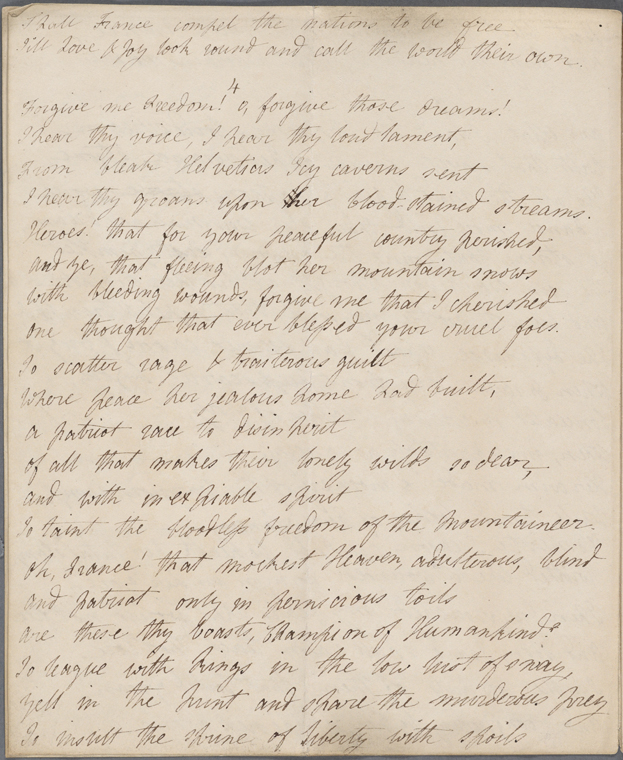 Shall France compel the nations to be free
Till Love & Joy look round and call the world their own.
4
Forgive me Freedom! o, forgive those dreams!
I hear thy voice, I hear thy loud lament,
From bleak Helvetias Icy caverns sent
I hear thy groans upon her blood-stained streams.
Heroes! that for your peaceful country perished,
and ye, that fleeing blot her mountain snows
with bleeding wounds, forgive me that I cherished
one thought that ever blessed your cruel foes.
To scatter rage & traiterous guilt
Where peace her jealous home had built,
a patriot race to disinherit
of all that makes their lonely wilds so dear,
and with inexpiable spirit
To taint the bloodless freedom of the Mountaineer.
Oh, France! that mockest Heaven, adulterous, blind
and patriot only in pernicious toils
are these thy boasts, Champion of Humankind?
To league with Kings in the low lust of sway,
yell in the hunt and share the murderous prey
To insult the shrine of Liberty with spoils